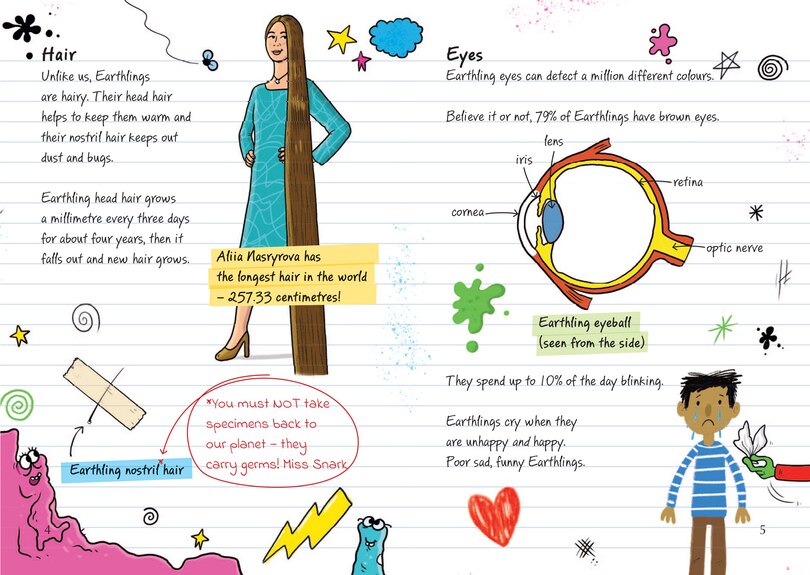 Hair
Unlike us, Earthlings
are hairy. Their head hair
helps to keep them warm and
their nostril hair keeps out
dust and bugs.
Earthling head hair grows
a millimetre every three days
for about four years, then it
falls out and new hair grows.
Aliia Nasryrova has
the longest hair in the world
– 257.33 centimetres!
*You must NOT take
specimens back to
our planet – they
carry germs! Miss Snark
Earthling nostril* hair
4
Eyes
Earthling eyes can detect a million different colours.
Believe it or not, 79% of Earthlings have brown eyes.
lens
iris
retina
cornea
optic nerve
Earthling eyeball
(seen from the side)
They spend up to 10% of the day blinking.
Earthlings cry when they
are unhappy and happy.
Poor sad, funny Earthlings.
5